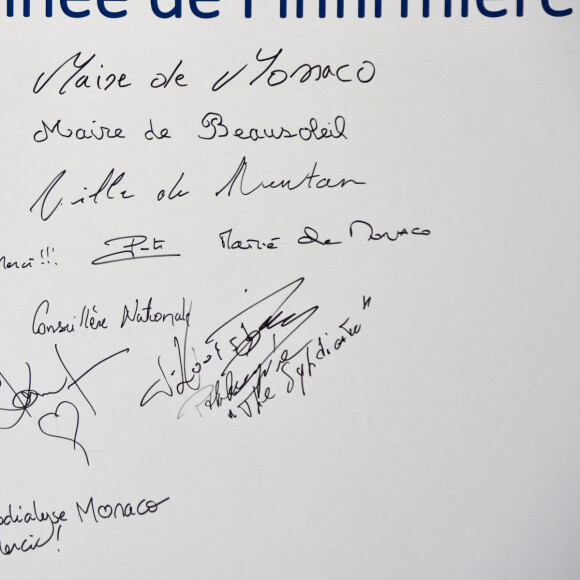 née de l'infirmière
Maire de Monaco
Maire de Beausoleil
Ville de Menton
Merci!!! Mairie de Monaco
Conseillère Nationale
"The Syndicate"
odialyse Monaco
Merci!